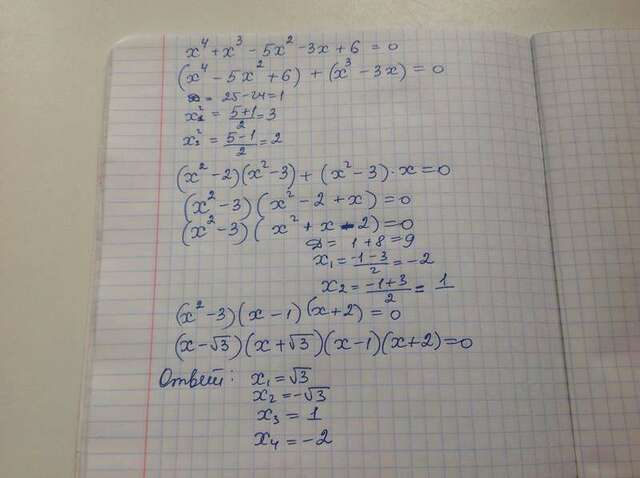 x⁴ + x³ - 5x² - 3x + 6 = 0
(x⁴ - 5x² + 6) + (x³ - 3x) = 0
D = 25 - 24 = 1
x₁² = (5+1)/2 = 3
x₂² = (5-1)/2 = 2
(x² - 2)(x² - 3) + (x² - 3) · x = 0
(x² - 3)(x² - 2 + x) = 0
(x² - 3)(x² + x - 2) = 0
D = 1 + 8 = 9
x₁ = (-1-3)/2 = -2
x₂ = (-1+3)/2 = 1
(x² - 3)(x - 1)(x + 2) = 0
(x - √3)(x + √3)(x - 1)(x + 2) = 0
Ответ: x₁ = √3
x₂ = -√3
x₃ = 1
x₄ = -2